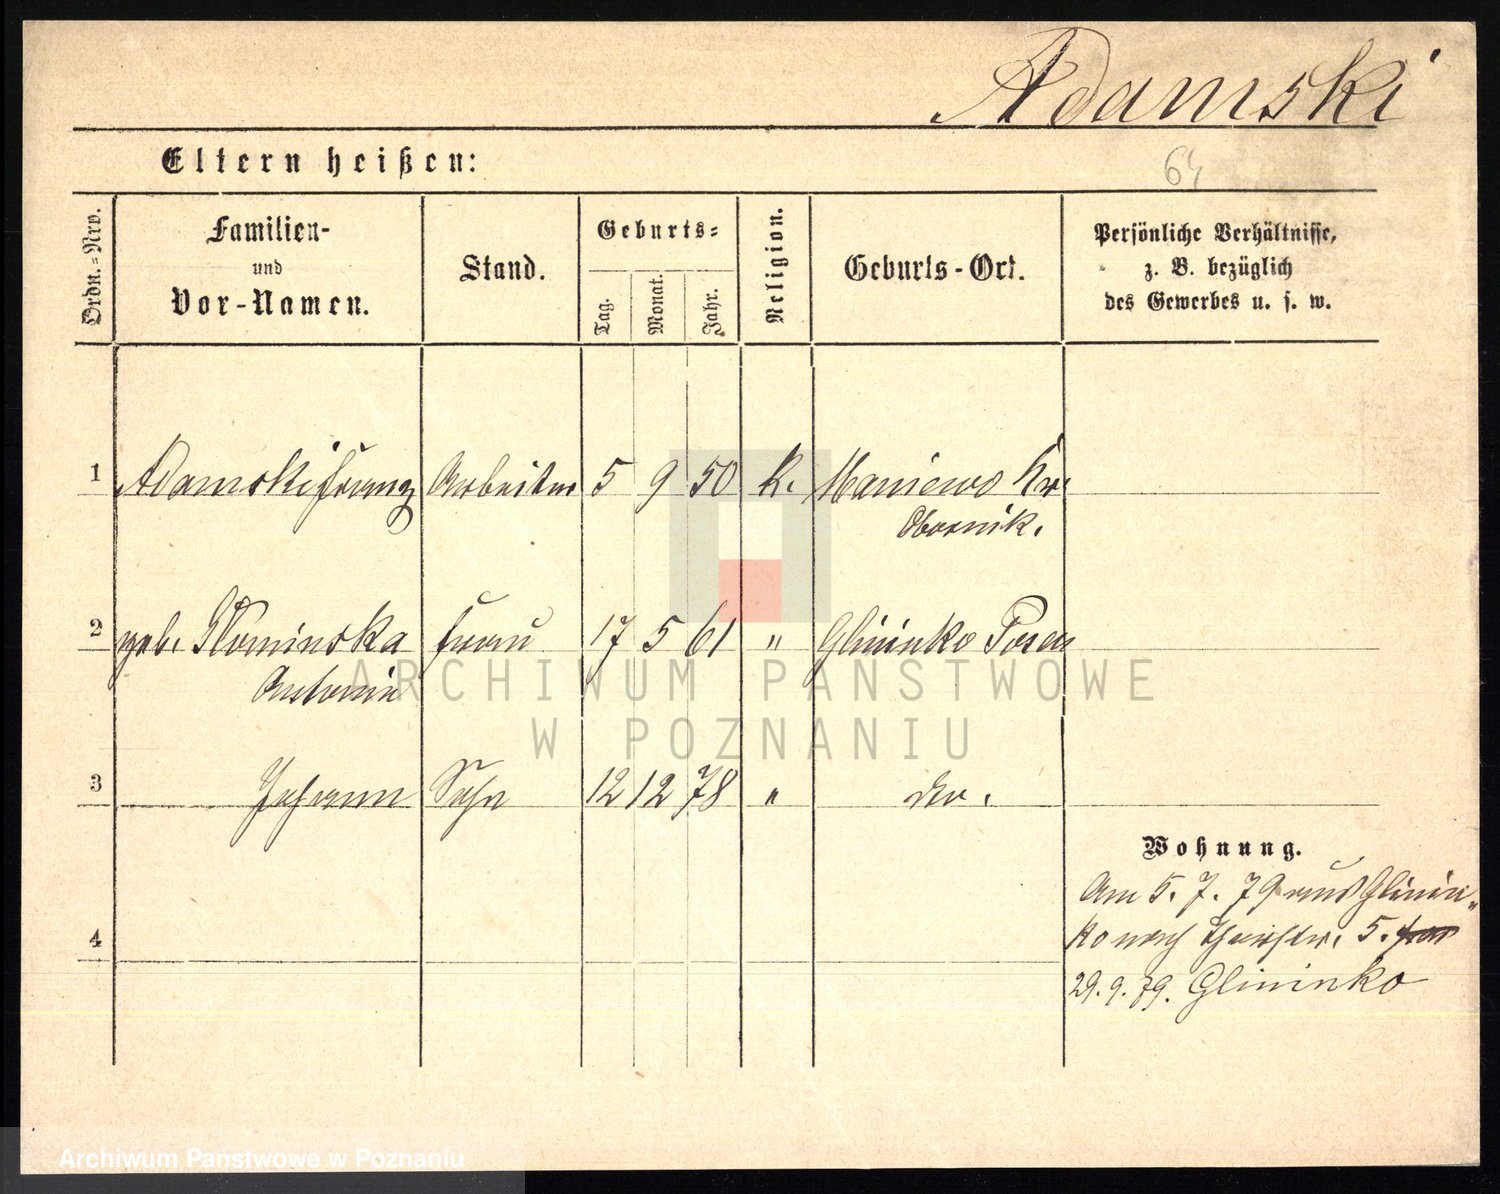 Adamski
Eltern heißen:
64
Ordn.=Nro.
Familien-
und
Vor-Namen.
Stand.
Geburts=
Tag.
Monat.
Jahr.
Religion.
Geburts-Ort.
Persönliche Verhältnisse,
z. B. bezüglich
des Gewerbes u. s. w.
1 Adamski Franz Arbeiter 5 9 50 K. Maniewo Kr.
Obornik.
2 geb. Slominska Frau 17 5 61 " Glininko Posen
Antonie
3 Johann Sohn 12 12 78 " do.
Wohnung.
Am 5. 7. 79 aus Glinin-
4
ko nach 5.
29. 9. 79. Glininko
ARCHIWUM PAŃSTWOWE
W POZNANIU
Archiwum Państwowe w Poznaniu